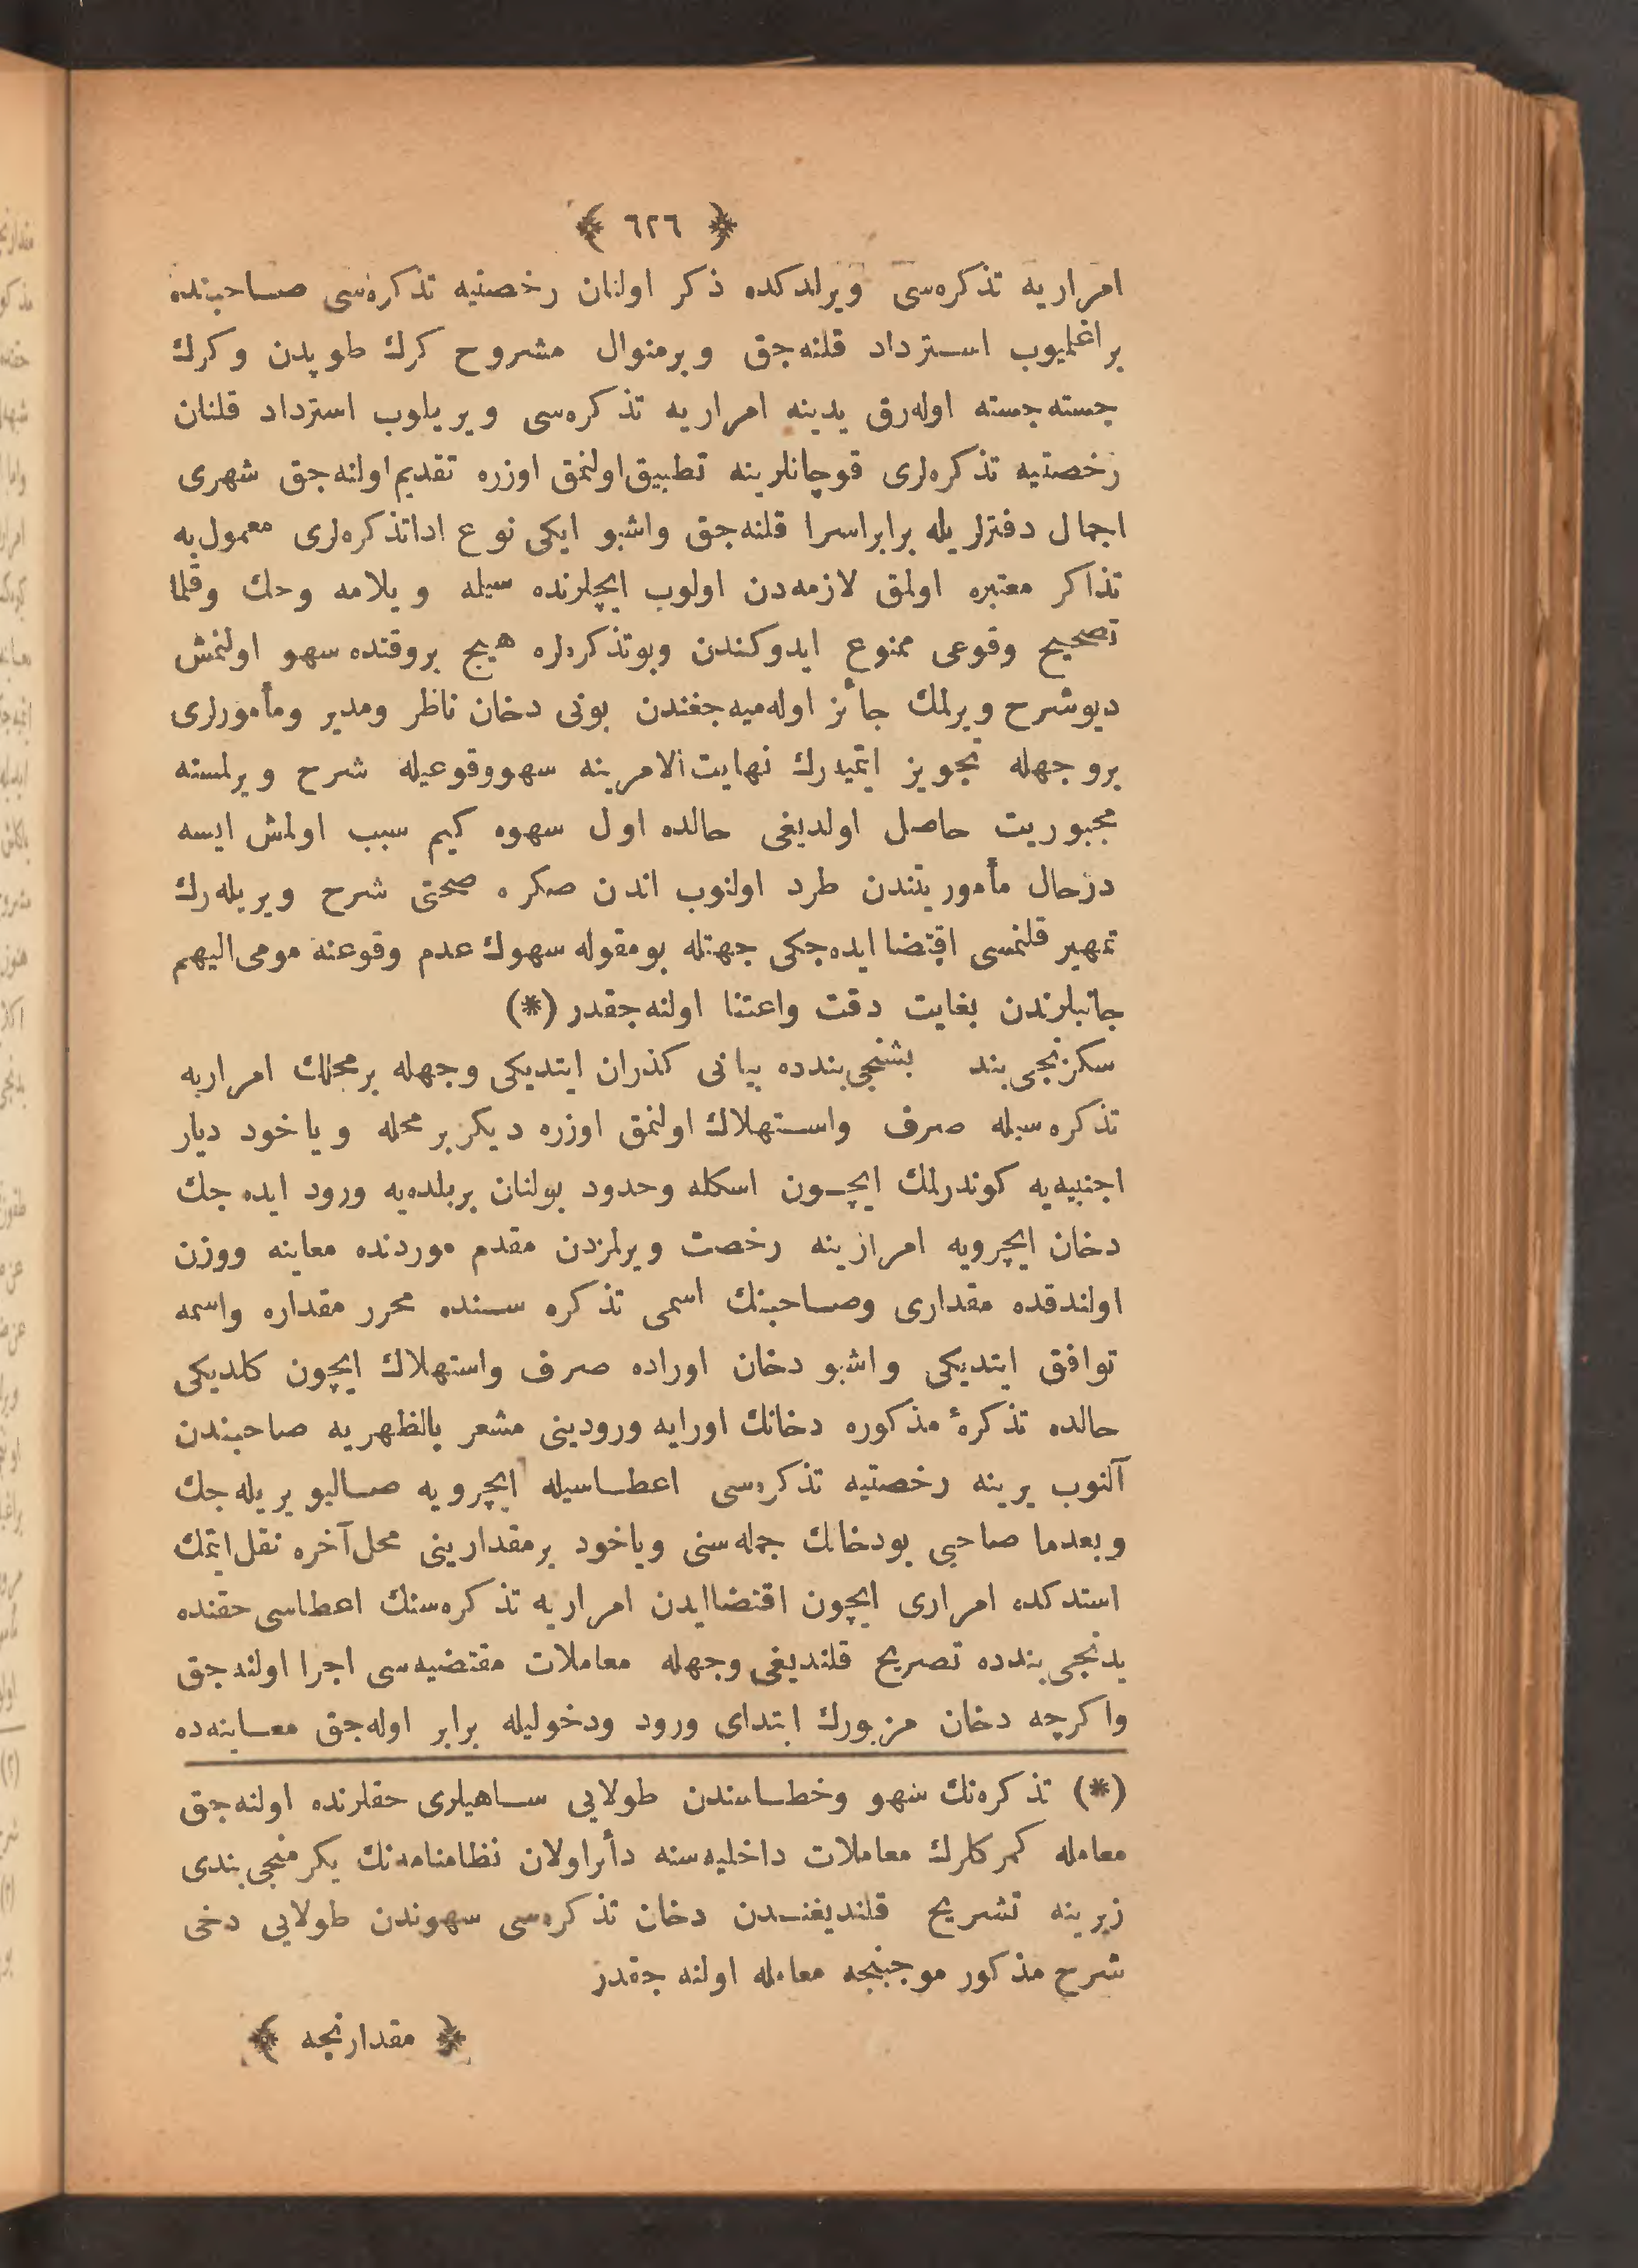 ﴿ ٦٢٦ ﴾
امراریه تذکره‌سی ویرلدکده ذکر اولنان رخصتیه تذکره‌سی صاحبنده
براغلمیوب استرداد قلنه‌جق وبرمنوال مشروح کرك طوپدن وکرك
جسته‌جسته اوله‌رق یدینه امراریه تذکره‌سی ویریلوب استرداد قلنان
رخصتیه تذکره‌لری قوچانلرینه تطبیق اولنمق اوزره تقدیم اولنه‌جق شهری
اجمال دفترلریله برابر اسرا قلنه‌جق واشبو ایکی نوع اداتذکره‌لری معمول‌به
تذاکر معتبره اولمق لازمه‌دن اولوب ایچلرنده سیله ویلامه وحك وقلما
تصحیح وقوعی ممنوع ایدوکندن وبوتذکره‌لره هیچ بروقتده سهو اولنمش
دیوشرح ویرلمك جائز اوله‌میه‌جغندن بونی دخان ناظر ومدیر ومأمورلری
بروجهله تجویز اتمیدرك نهایت‌الامرینه سهووقوعیله شرح ویرلمسنه
مجبوریت حاصل اولدیغی حالده اول سهوه کیم سبب اولمش ایسه
درحال مأموریتندن طرد اولنوب اندن صکره صحتی شرح ویریله‌رك
تمهیر قلنمسی اقتضا ایده‌جکی جهتله بومقوله سهوك عدم وقوعنه مومی‌الیهم
جانبلرندن بغایت دقت واعتنا اولنه‌جقدر (*)
سکزنجی‌بند بشنجی‌بندده بیانی کذران ایتدیکی وجهله برمحللك امراریه
تذکره‌سیله صرف واستهلاك اولنمق اوزره دیکربرمحله ویاخود دیار
اجنبیه‌یه کوندرلمك ایچون اسکله وحدود بولنان بربلده‌یه ورود ایده‌جك
دخان ایچرویه امرارینه رخصت ویرلمزدن مقدم موردنده معاینه ووزن
اولندقده مقداری وصاحبنك اسمی تذکره سنده محرر مقداره واسمه
توافق ایتدیکی واشبو دخان اوراده صرف واستهلاك ایچون کلدیکی
حالده تذکرۀ مذکوره دخانك اورایه ورودینی مشعر بالظهریه صاحبندن
آلنوب یرینه رخصتیه تذکره‌سی اعطاسیله ایچرویه صالیویریله‌جك
وبعدما صاحبی بودخانك جمله‌سنی ویاخود برمقدارینی محل‌آخره نقل‌ایتمك
استدکده امراری ایچون اقتضاایدن امراریه تذکره‌سنك اعطاسی حقنده
یدنجی‌بندده تصریح قلندیغی وجهله معاملات مقتضیه‌سی اجرا اولنه‌جق
واکرچه دخان مزبورك ابتدای ورود ودخولیله برابر اوله‌جق معاینه‌ده
(*) تذکره‌نك سهو وخطاسندن طولایی ساهیلری حقلرنده اولنه‌جق
معامله کمرکلرك معاملات داخلیه‌سنه دأئراولان نظامنامه‌نك یکرمنجی‌بندی
زیرینه تشریح قلندیغندن دخان تذکره‌سی سهوندن طولایی دخی
شرح مذکور موجبنجه معامله اولنه‌جقدر
﴿ مقدارنجه ﴾